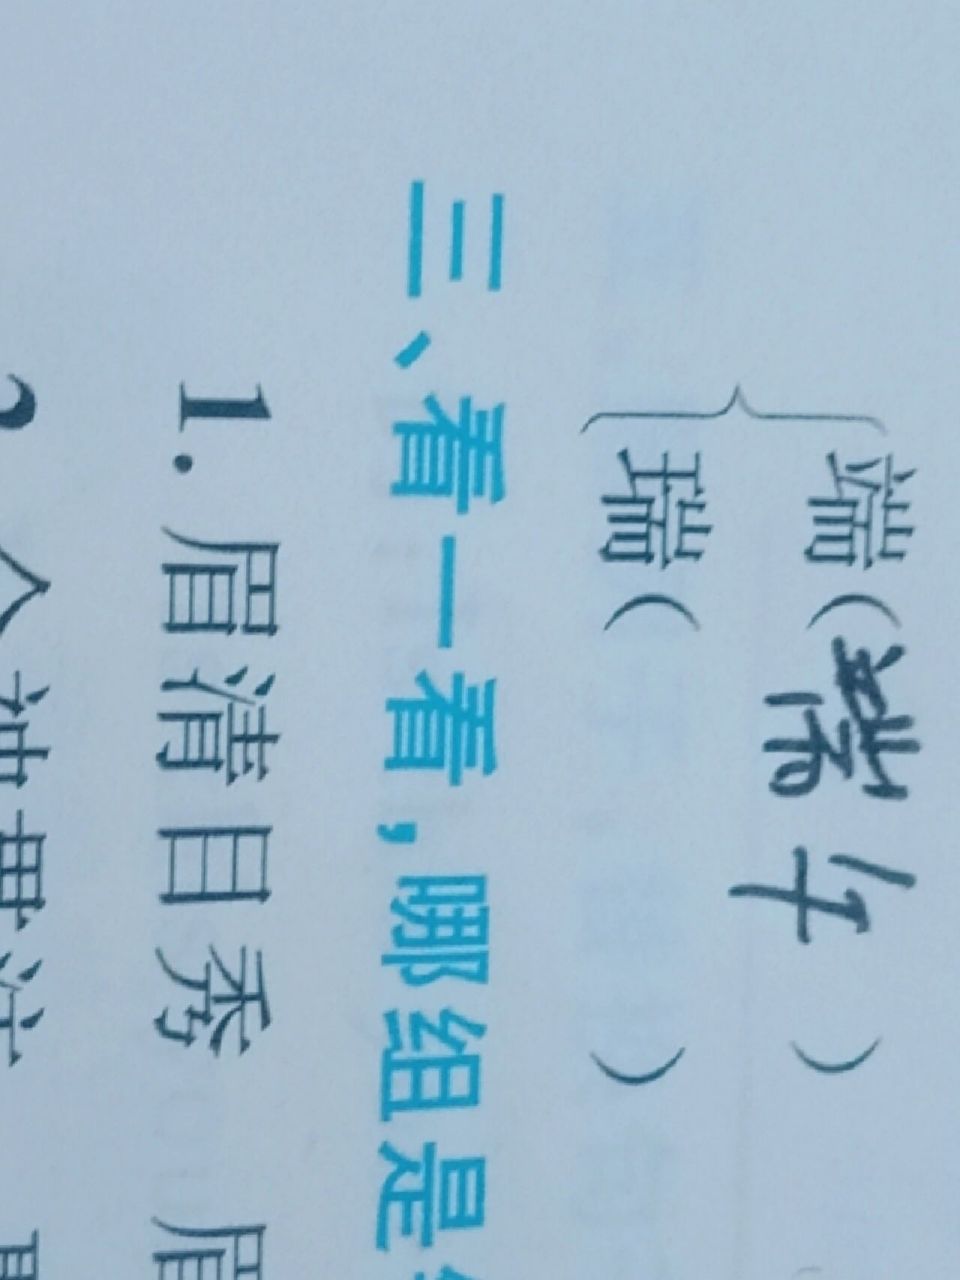 端(端午)
瑞( )
三、看一看,哪组是
1. 眉清目秀 眉
2